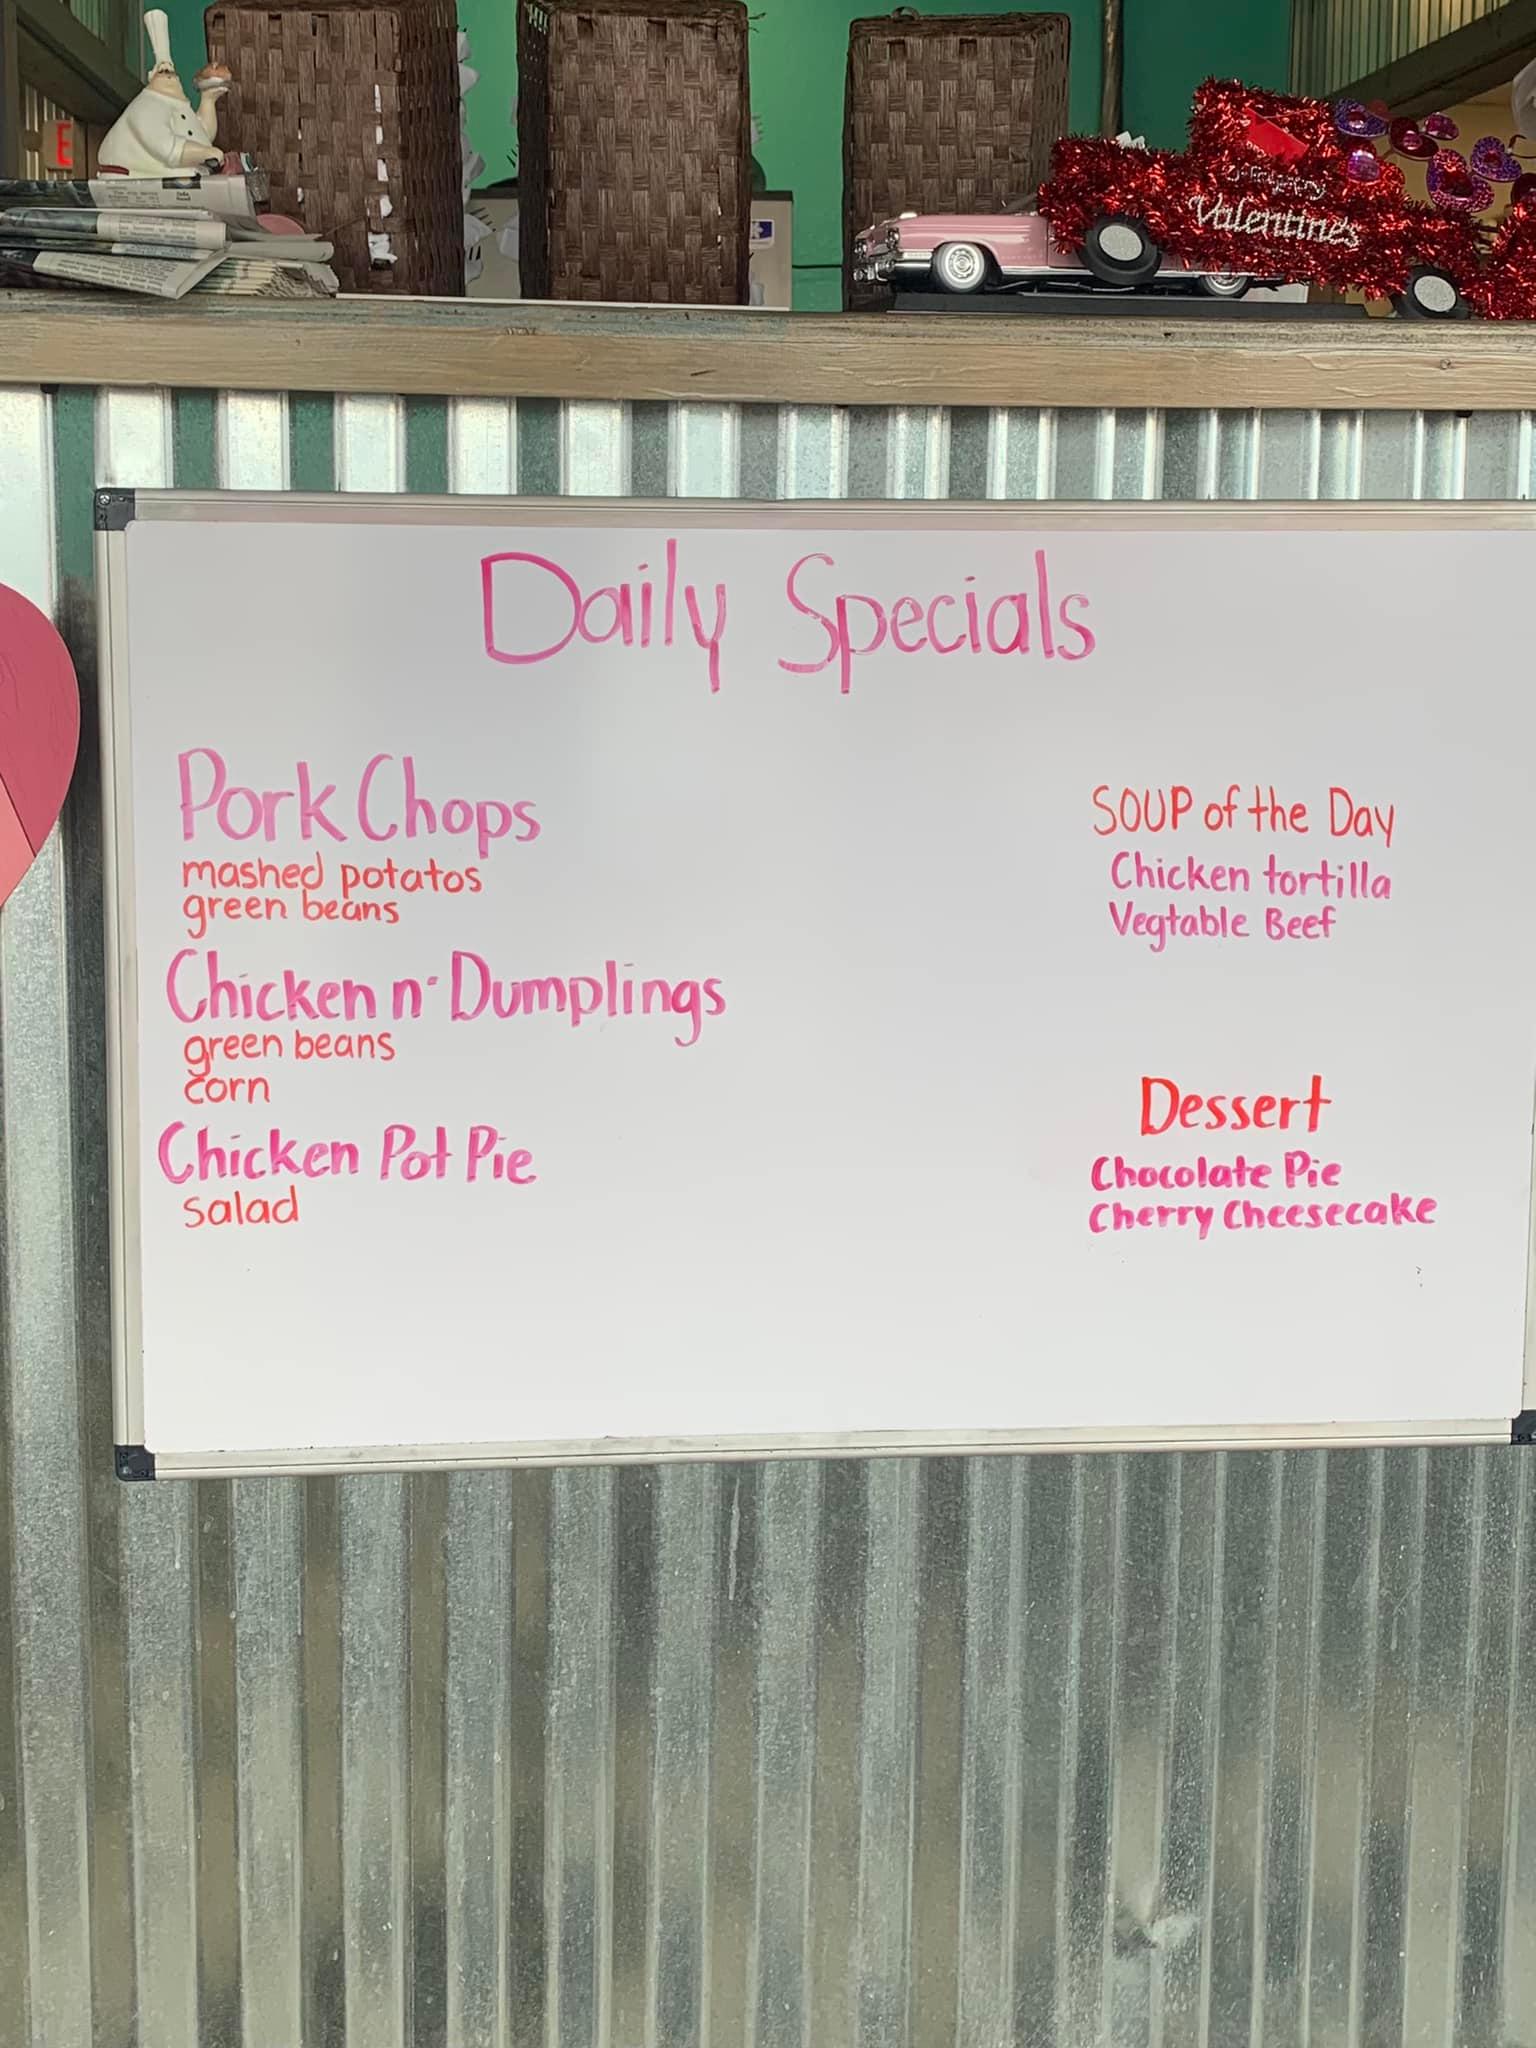 Valentine's
Daily Specials
Pork Chops
mashed potatos
green beans
Chicken n' Dumplings
green beans
corn
Chicken Pot Pie
salad
SOUP of the Day
Chicken tortilla
Vegtable Beef
Dessert
Chocolate Pie
Cherry Cheesecake